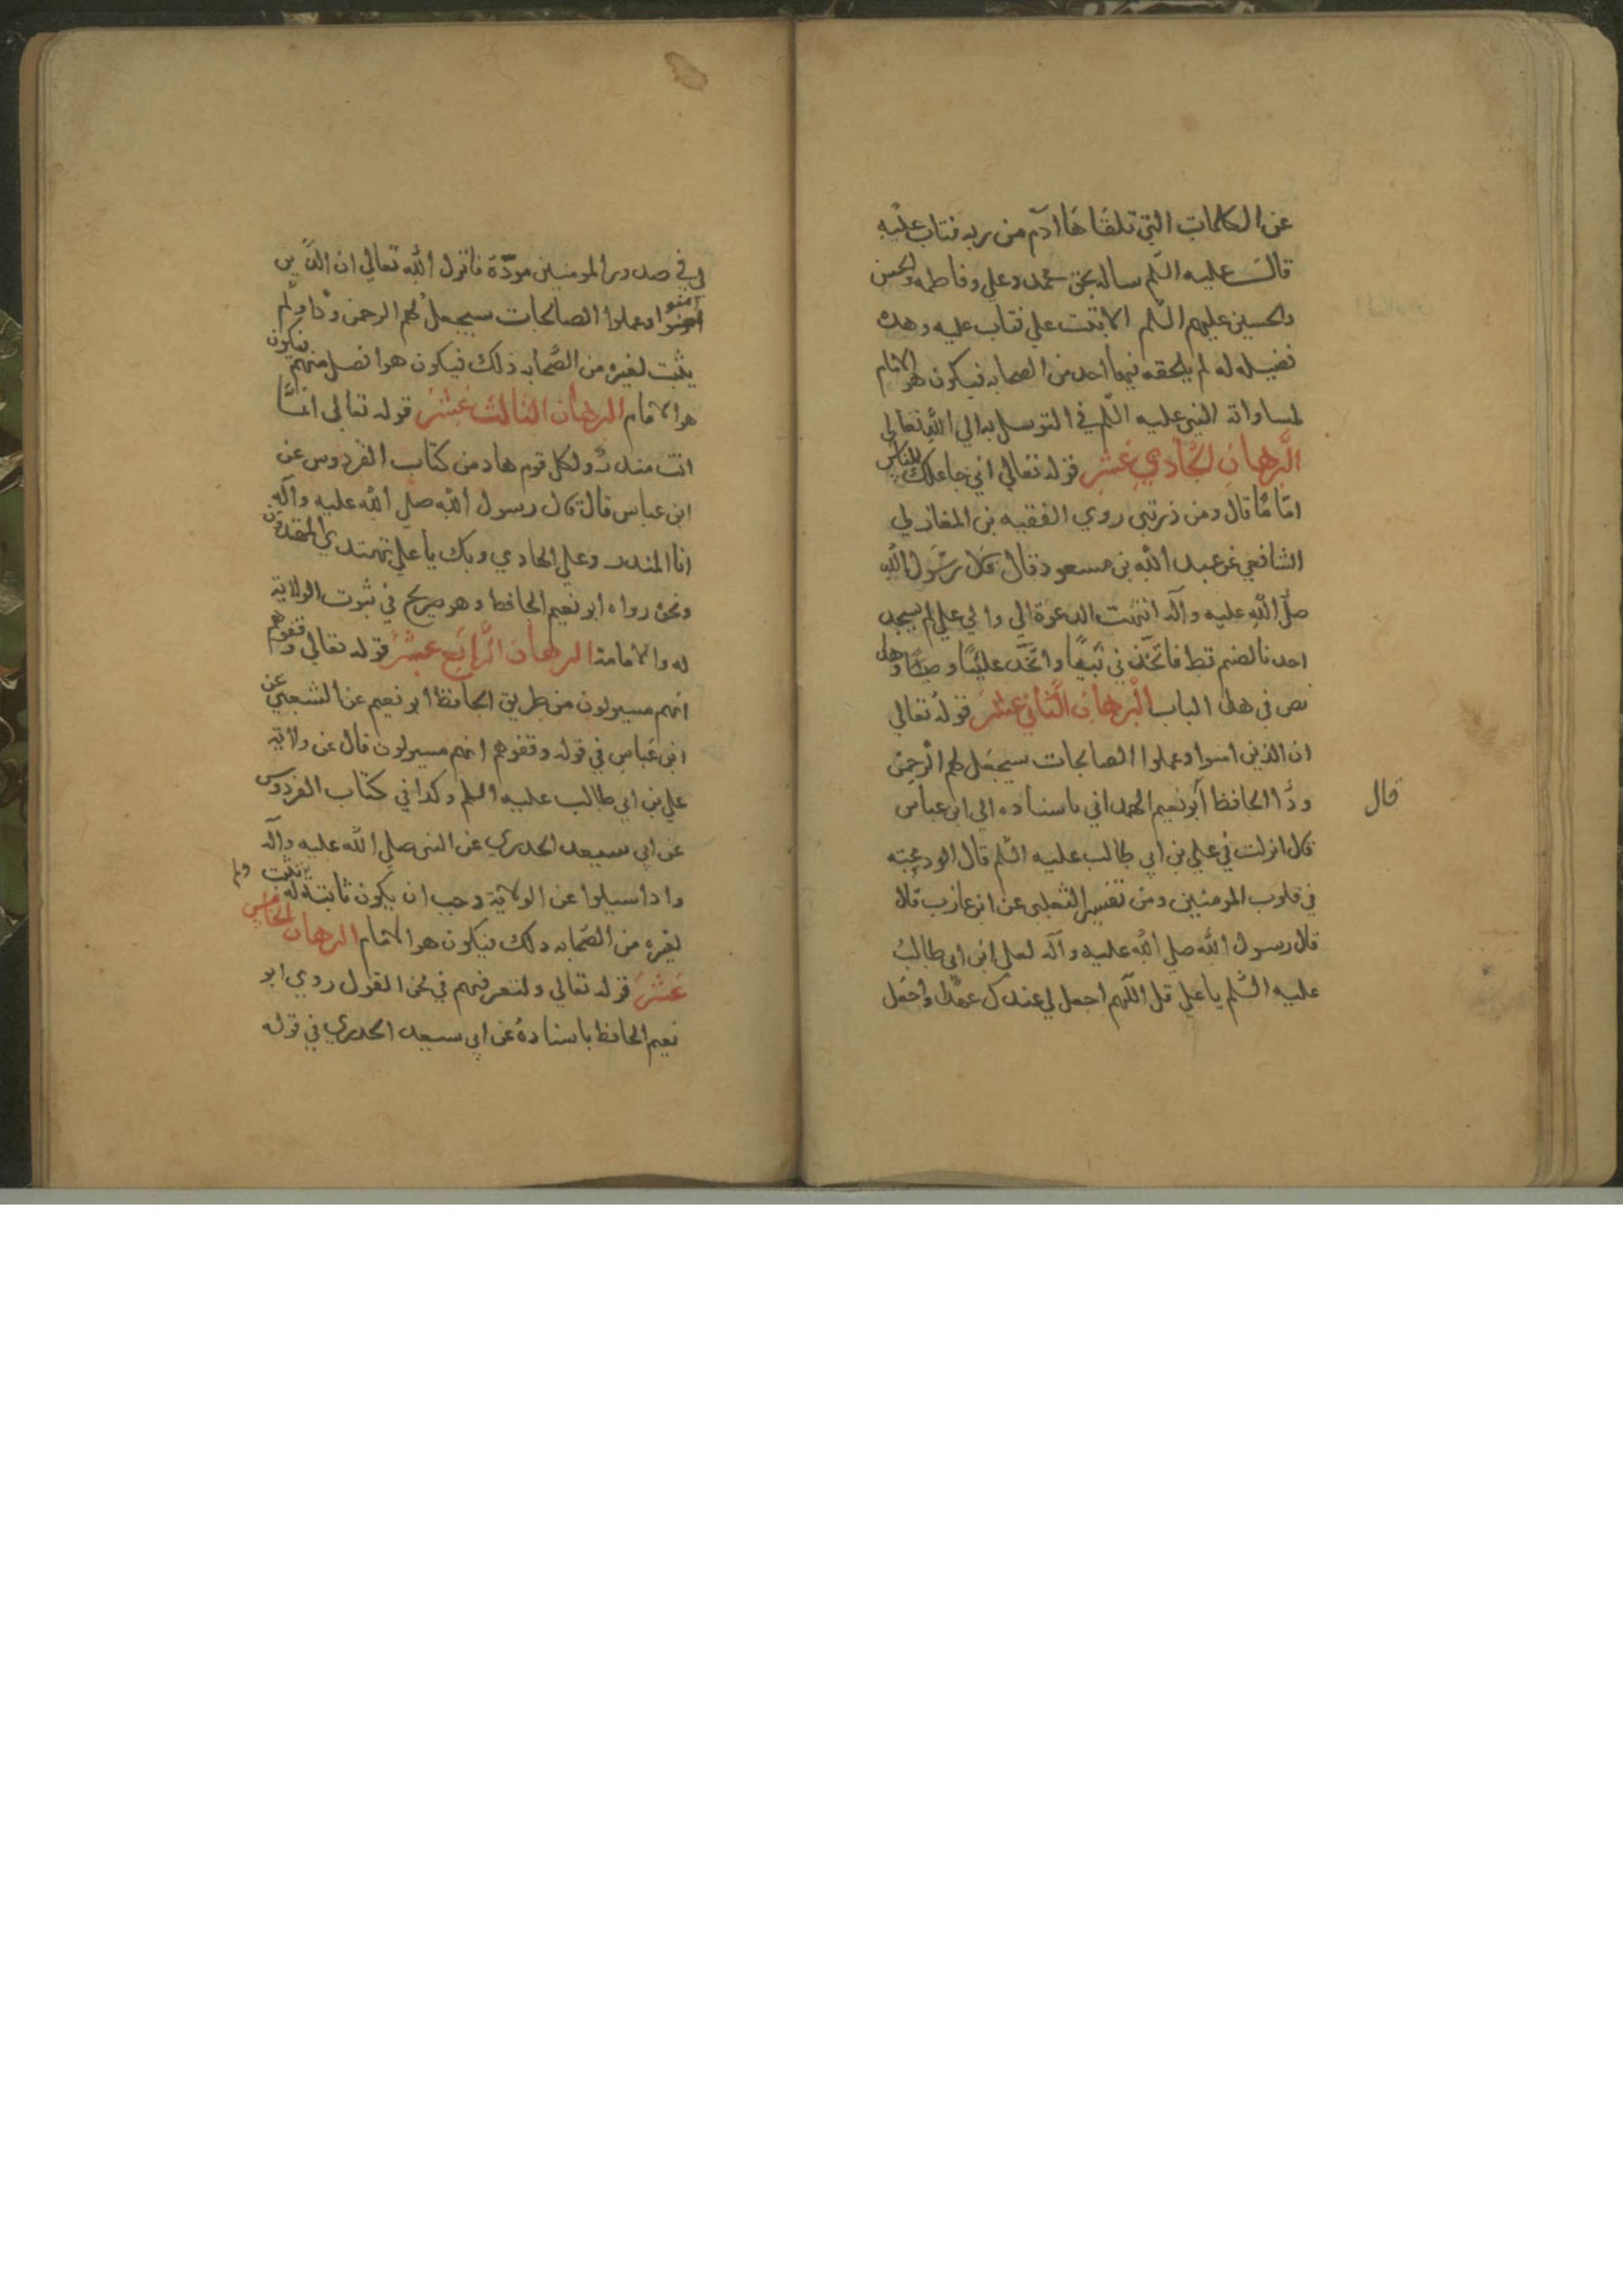 عن الكلمات التي تلقاها آدم من ربه فتاب عليه
قال عليه السلم ساله بحق محمد وعلي وفاطمه والحسن
والحسين عليهم السلم الا تبت علي فتاب عليه وهذه
فضيله له لم يلحقه فيها احد من الصحابه فيكون هو الامام
لمساواته النبي عليه السلم في التوسل به الي الله تعالي
البرهان الحادي عشر قوله تعالي اني جاعلك للناس
اماما قال ومن ذريتي روي الفقيه بن المغازلي
الشافعي عن عبد الله بن مسعود قال قال رسول الله
صلي الله عليه وآله انتهت الدعوة الي والي علي لم يسجد
احدنا لصنم قط فاتخذني نبيا واتخذ عليا وصيا وهذا
نص في هذا الباب البرهان الثاني عشر قوله تعالي
ان الذين امنوا وعملوا الصالحات سيجعل لهم الرحمن
ودا الحافظ ابو نعيم الهمداني باسناده الي ابن عباس
قال
قال انزلت في علي بن ابي طالب عليه السلم قال الود محبته
في قلوب المومنين ومن تفسير الثعلبي عن ابن عازب قال
قال رسول الله صلي الله عليه وآله لعلي ابن ابي طالب
عليه السلم يا علي قل اللهم اجعل لي عندك عهدا واجعل
لي في صدور المومنين مودة فانزل الله تعالي ان الذين
آمنوا وعملوا الصالحات سيجعل لهم الرحمن ودا ولم
يثبت لغيره من الصحابه ذلك فيكون هو افضل منهم فيكون
هو الامام البرهان الثالث عشر قوله تعالي انما
انت منذر ولكل قوم هاد من كتاب الفردوس عن
ابن عباس قال قال رسول الله صلي الله عليه وآله
انا المنذر وعلي الهادي وبك يا علي يهتدي المهتدون
ونحوه رواه ابو نعيم الحافظ وهو صريح في ثبوت الولاية
له والامامة البرهان الرابع عشر قوله تعالي وقفوهم
انهم مسيولون من طريق الحافظ ابو نعيم عن الشعبي عن
ابن عباس في قوله وقفوهم انهم مسيولون قال عن ولاية
علي بن ابي طالب عليه السلم وكذا في كتاب الفردوس
عن ابي سعيد الخدري عن النبي صلي الله عليه وآله
واذا سيلوا عن الولاية وجب ان يكون ثابتة له ولم يثبت
لغيره من الصحابه ذلك فيكون هو الامام البرهان الخامس
عشر قوله تعالي ولتعرفنهم في لحن القول روي ابو
نعيم الحافظ باسناده عن ابي سعيد الخدري في قوله